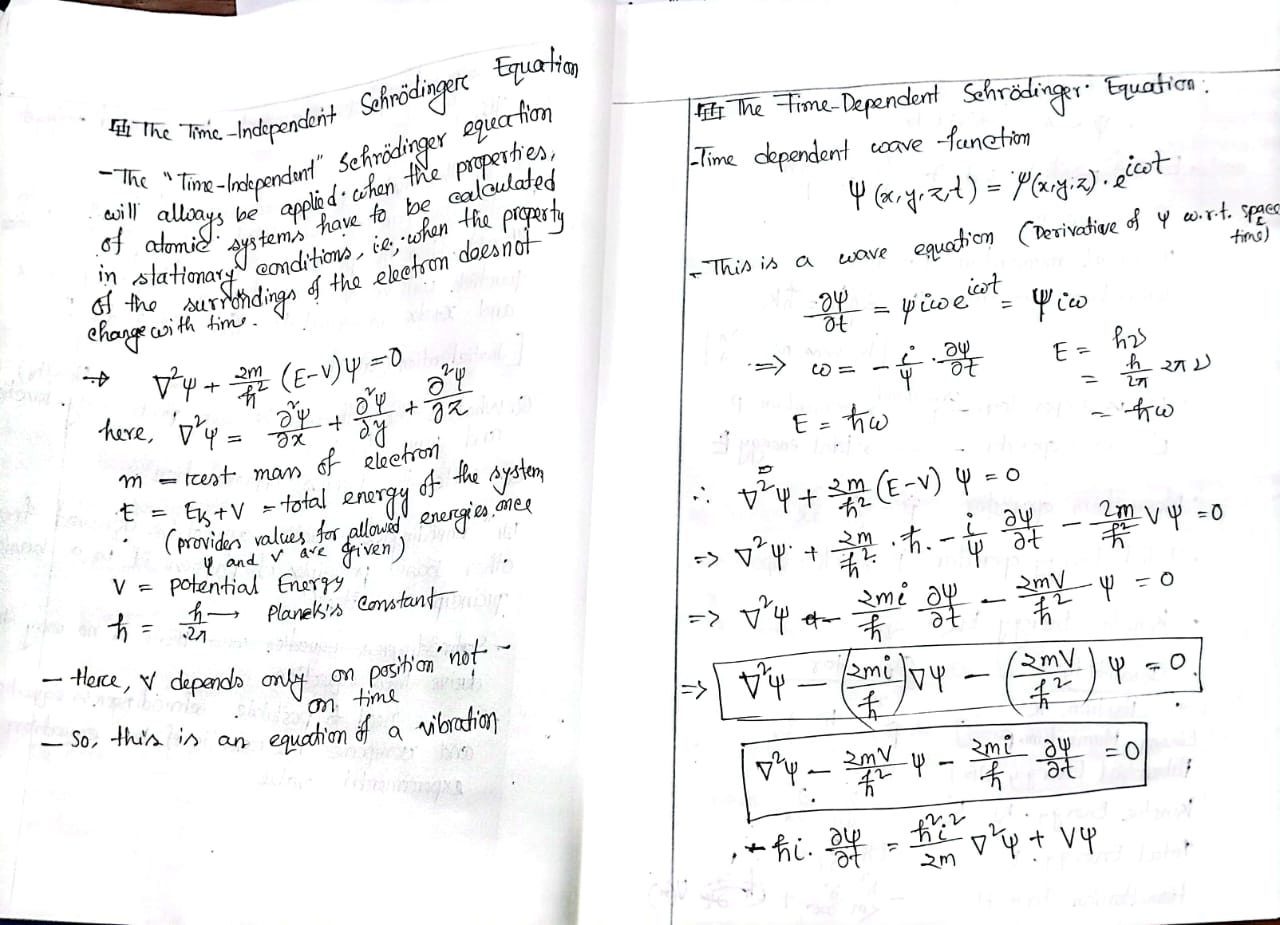 The Time-Independent Schrödinger Equation
- The "Time-Independent" Schrödinger equation
will allways be applied when the properties,
of atomic systems have to be calculated
in stationary conditions, i.e, when the property
of the surrondings of the electron doesnot
change with time.
⇒ ∇²ψ + 2m/ħ² (E-V)ψ = 0
here, ∇²ψ = ∂²ψ/∂x + ∂²ψ/∂y + ∂²ψ/∂z
m = rest mass of electron
E = Ek + V = total energy of the system
(provides values for allowed energies once
ψ and V are given)
V = potential Energy
ħ = h/2π → Planck's constant
- Here, V depends only on position not -
on time
- So, this is an equation of a vibration
The Time-Dependent Schrödinger Equation:
- Time dependent wave -function
Ψ(x,y,z,t) = ψ(x,y,z) · e^iωt
- This is a wave equation (Derivative of ψ w.r.t. space
time)
∂Ψ/∂t = ψiωe^iωt = Ψiω
⇒ ω = - i/ψ · ∂ψ/∂t E = hν
= h/2π 2πν
E = ħω = ħω
∴ ∇²ψ + 2m/ħ² (E-V) ψ = 0
⇒ ∇²ψ + 2m/ħ² · ħ · - i/ψ ∂ψ/∂t - 2m/ħ² Vψ = 0
⇒ ∇²ψ - 2mi/ħ ∂ψ/∂t - 2mV/ħ² ψ = 0
⇒ ∇²ψ - (2mi/ħ)∇ψ - (2mV/ħ²)ψ = 0
∇²ψ - 2mV/ħ² ψ - 2mi/ħ ∂ψ/∂t = 0
ħi · ∂ψ/∂t = ħ²i²/2m ∇²ψ + Vψ